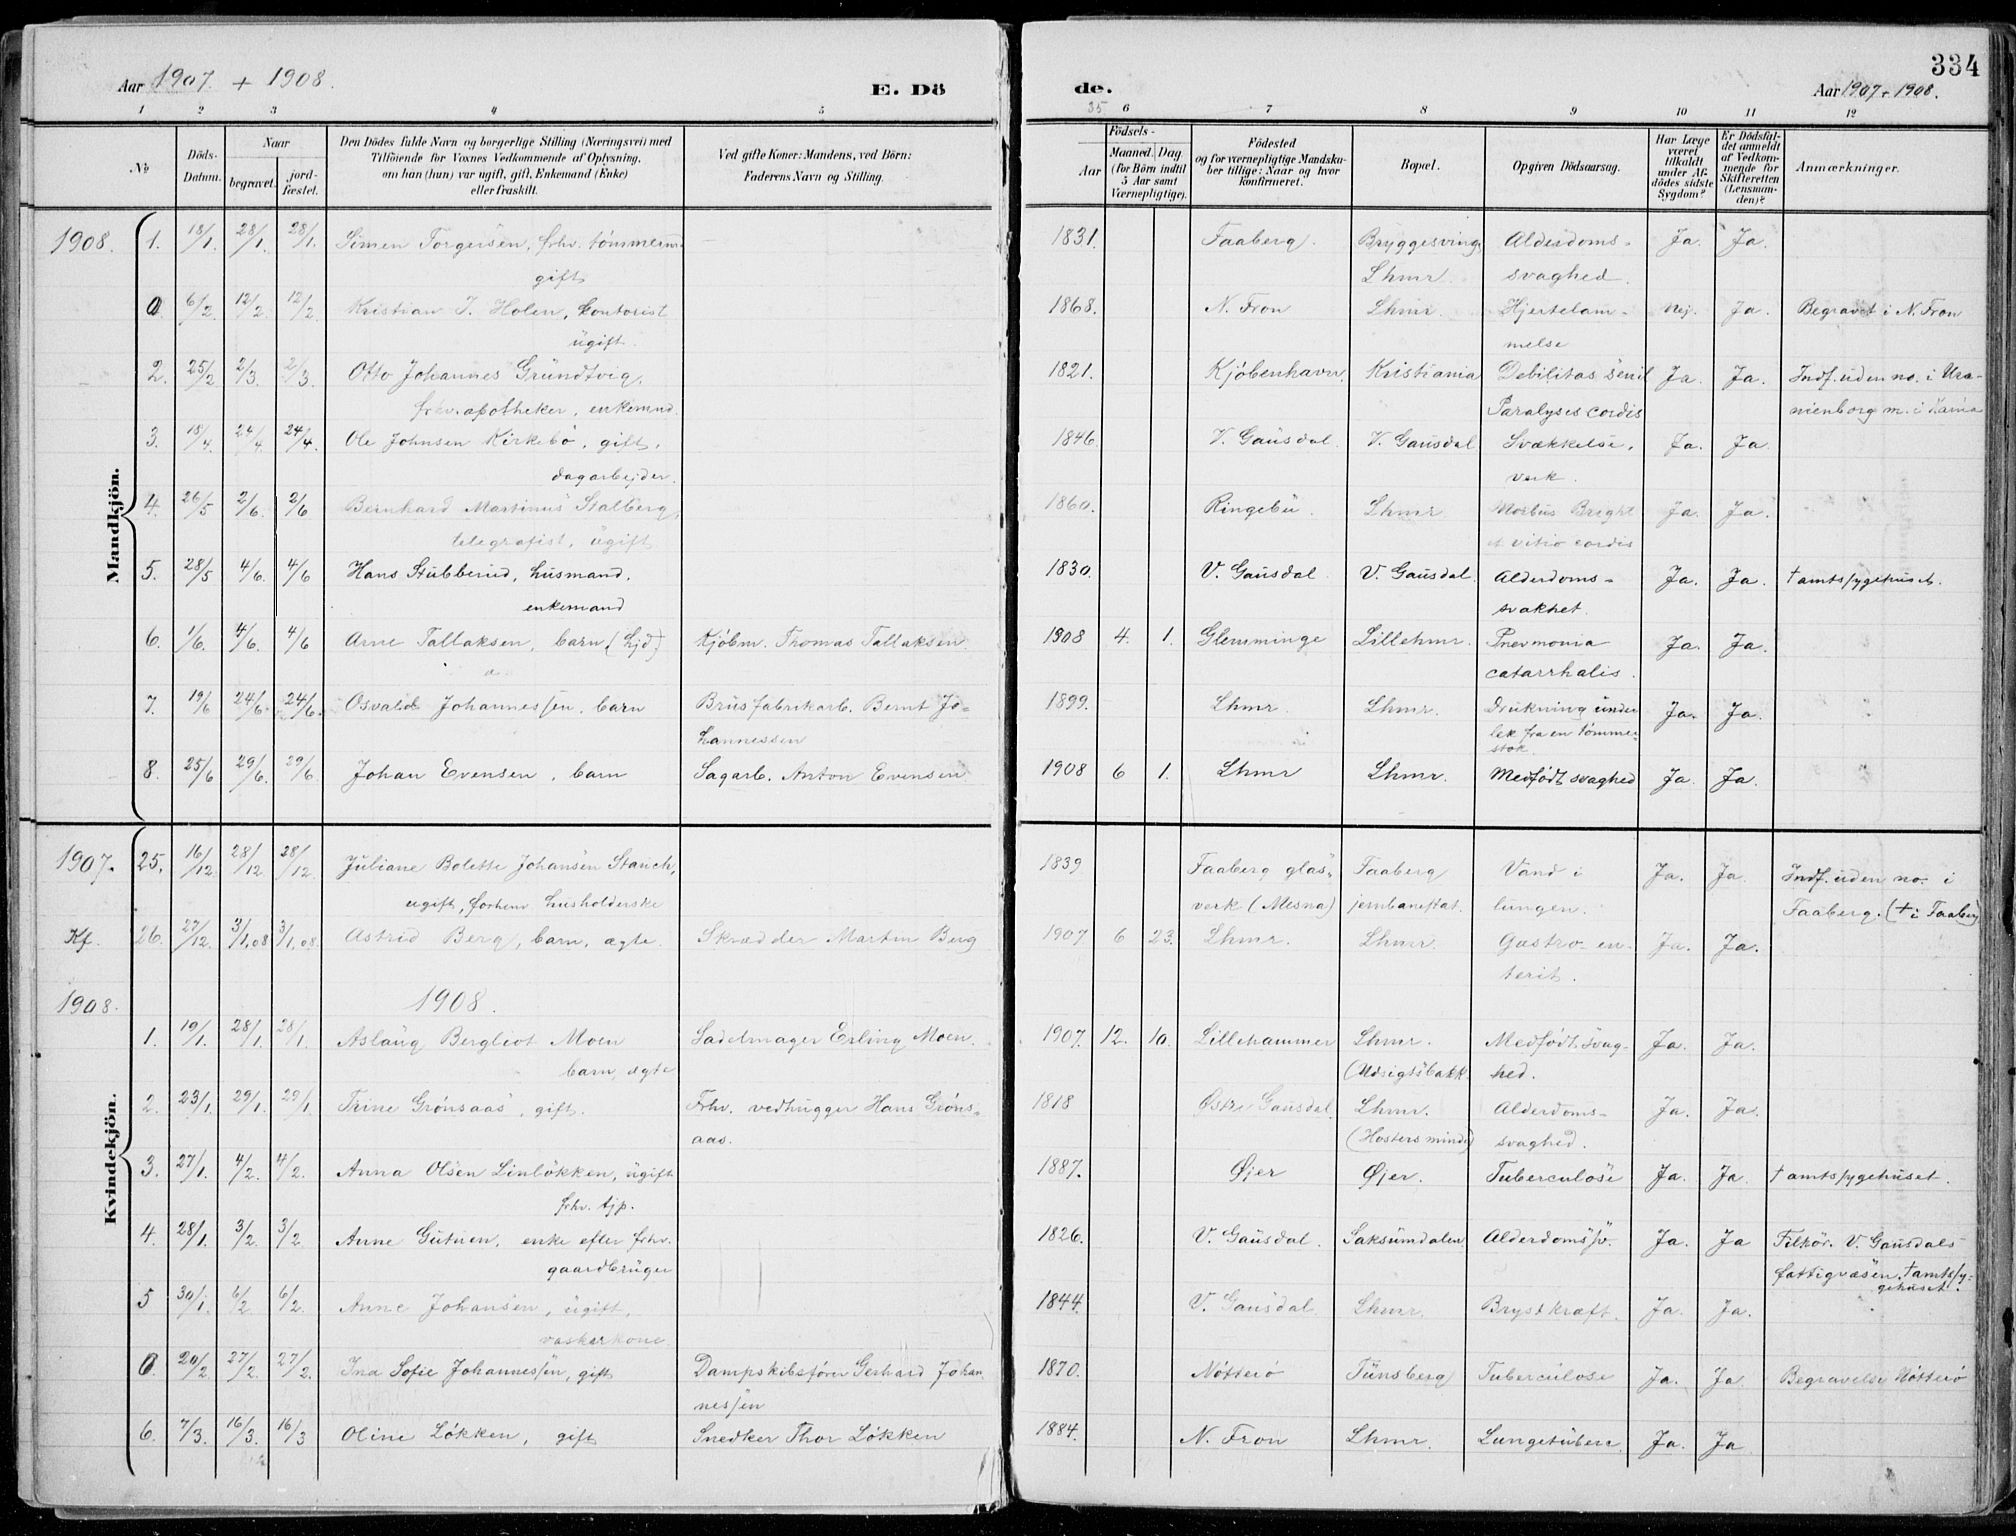 334
Aar 1907 + 1908.
E. Dö de.
Aar 1907 + 1908.
1 2 3 4 5 35 6 7 8 9 10 11 12
No
Döds-Datum.
Naar
begravet.
jord-fæstet.
Den Dödes fulde Navn og borgerlige Stilling (Næringsvei) med
Tilföiende for Voxnes Vedkommende af Oplysning,
om han (hun) var ugift, gift, Enkemand (Enke)
eller fraskilt.
Ved gifte Koner: Mandens, ved Börn:
Faderens Navn og Stilling.
Födsels-
Aar
Maaned. Dag
(for Börn indtil
5 Aar samt
Værnepligtige).
Födested
og for værnepligtige Mandska-
ber tillige: Naar og hvor
konfirmeret.
Bopæl.
Opgiven Dödsaarsag.
Har Læge
været
tilkaldt
under Af-
dödes sidste
Sygdom?
Er Dödsfal-
det anmeldt
af Vedkom-
mende for
Skifteretten
(Lensman-
den)?
Anmærkninger.
Mandkjön.
1908. 1. 18/1. 28/1. 28/1. Simen Torgersen, frhv. tömmerm. — 1831. Faaberg. Bryggesving Alderdoms- Ja. Ja.
gift Lhmr. svaghed.
0 6/2 12/2. 12/2. Kristian J. Holen, kontorist 1868. N. Fron Lhmr. Hjertelam- Nej. Ja. Begravet i N. Fron
ugift. melse
2. 25/2 2/3. 2/3. Otto Johannes Grundtvig, 1821. Kjøbenhavn. Kristiania Debilitas senil Ja. Ja. Indf. uden no. i Ura-
frhv. apotheker, enkemnd. Paralysis cordis nienborg m. i Kania
3. 18/4. 24/4. 24/4. Ole Johnsen Kirkebö, gift, 1846. V. Gausdal. V. Gausdal Svækkelse, Ja. Ja.
dagarbejder. verk.
4. 26/5 2/6. 2/6 Bernhard Martinus Stalberg, 1860. Ringebu. Lhmr Morbus Bright Ja. Ja.
telegrafist, ugift et vitio cordis
5. 28/5 4/6. 4/6 Hans Stubberud, husmand. 1830. V. Gausdal V. Gausdal. Alderdoms- Ja. Ja. † amtssygehuset.
enkemand svakhet.
6. 1/6. 4/6. 4/6 Arne Tallaksen, barn (hjd) Kjöbm. Thomas Tallaksen 1908 4. 1. Glemminge Lillehmr. Pnevmonia Ja. Ja.
catarrhalis.
7. 19/6 24/6. 24/6. Osvald Johannessen, barn Brusfabrikarb. Bernt Jo- 1899. Lhmr. Lhmr. Drukning under Ja. Ja.
hannessen lek fra en tömmer-
stok.
8. 25/6 29/6. 29/6. Johan Evensen, barn Sagarb. Anton Evensen 1908 6 1. Lhmr Lhmr. Medfödt svaghed Ja. Ja.
Kvindekjön.
1907. 25. 16/12. 28/12 28/12. Juliane Bolette Johansen Stauch, 1839 Faaberg glas- Faaberg Vand i Ja. Ja. Indf. uden no. i
ugift, forhenv. husholderske verk (Mesna) jernbanestat. lungen. Faaberg. († i Faaberg)
Kf. 26. 27/12. 3/1,08 3/1,08. Astrid Berg, barn, ægte. Skrædder Martin Berg 1907 6 23. Lhmr. Lhmr. Gastro-en- Ja. Ja.
terit.
1908. 1908.
1. 19/1. 28/1. 28/1. Aslaug Bergliot Moen Sadelmager Erling Moen. 1907. 12. 10. Lillehammer Lhmr. Medfödt svag- Ja. Ja.
barn, ægte (Udsigtsbakk. hed.
2. 23/1. 29/1. 29/1. Trine Grönsaas, gift. Frhv. vedhugger Hans Gröns- 1818 Østre Gausdal. Lhmr. Alderdoms- Ja. Ja.
aas. (Hosters minde) svaghed.
3. 27/1. 4/2. 4/2. Anna Olsen Linlökken, ugift 1887. Øjer Øjer. Tuberculose Ja. Ja. † amtssygehuset.
frhv. tjp.
4. 28/1. 3/2. 3/2. Anne Gutuen, enke efter frhv. 1826. V. Gausdal. Saksumdalen. Alderdomssv. Ja. Ja Tilhör. V. Gausdals
gaardbruger fattigvæsen. † amtssy-
gehuset.
5 30/1. 6/2. 6/2. Anne Johansen, ugift, 1844. V. Gausdal. Lhmr. Brystkræft. Ja. Ja.
vaskerkone
0 20/2 27/2. 27/2. Ina Sofie Johannessen, gift Dampskibsförer Gerhard Johan- 1870. Nötterö Tünsberg Tuberculose Ja. Ja. Begravelse Nötterö
nessen
6. 7/3. 16/3. 16/3 Oline Lökken, gift Snedker Thor Lökken 1884. N. Fron Lhmr. Lungetuberc. Ja. Ja